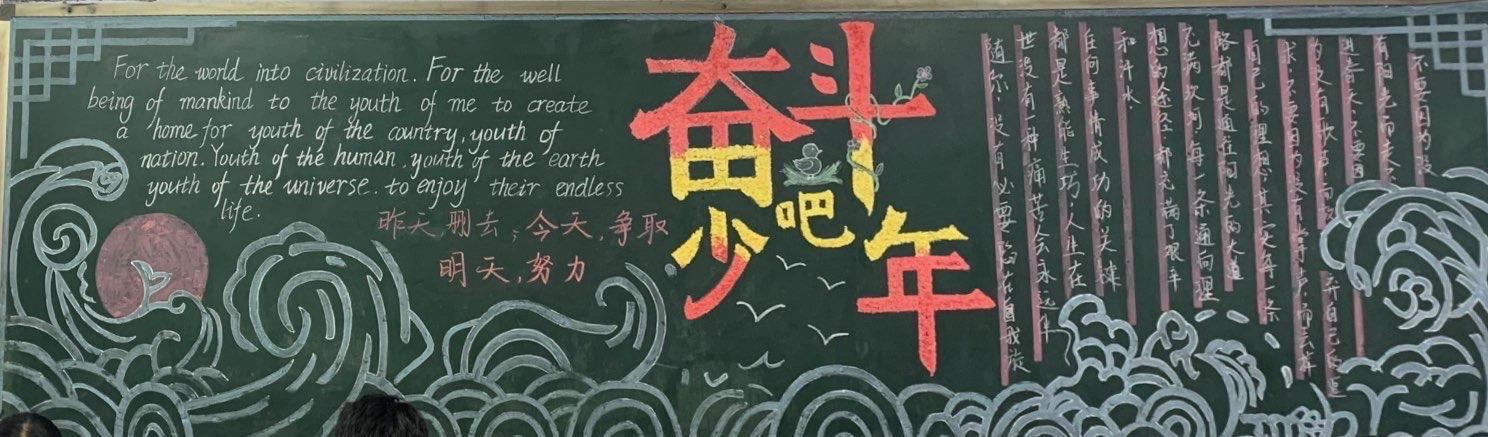 For the world into civilization. For the well
being of mankind to the youth of me to create
a home for youth of the country, youth of
nation. Youth of the human, youth of the earth
youth of the universe. to enjoy their endless
life.
昨天,删去;今天,争取
明天,努力
奋斗
吧
少年
不要因为没
有阳光而走不
进春天,不要因
为没有歌声而放弃自己的追
求,不要因为没有掌声,而丢弃
自己的理想,其实每一条
路都是通往阳光的大道
充满坎坷每一条通向理
想的途径都充满了艰辛
和汗水
任何事情成功的关键
都是熟能生巧,人生在
世没有一种痛苦会永远伴
随你,没有必要陷在自我